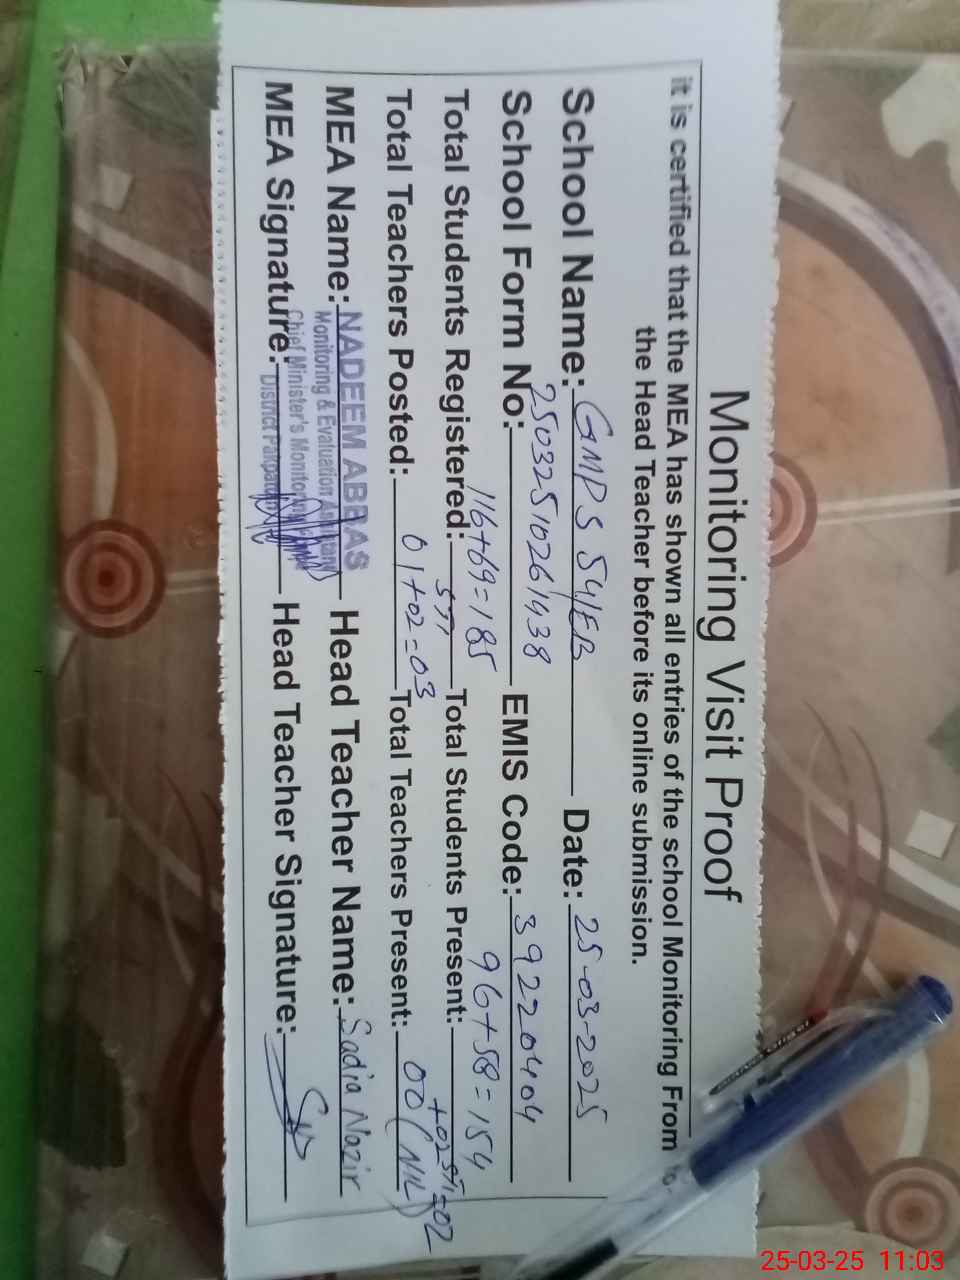 Monitoring Visit Proof
it is certified that the MEA has shown all entries of the school Monitoring From to
the Head Teacher before its online submission.
School Name: GMPS 54/EB Date: 25-03-2025
School Form No: 25032510261438 EMIS Code: 39220404
Total Students Registered: 116+69=185 Total Students Present: 96+58=154
STI
Total Teachers Posted: 01+02=03 Total Teachers Present: 00(NIL)
+02STI=02
MEA Name: NADEEM ABBAS Head Teacher Name: Sadia Nazir
Monitoring & Evaluation Assistant
Chief Minister's Monitoring
District Pakpattan
MEA Signature: Head Teacher Signature:
25-03-25 11:03